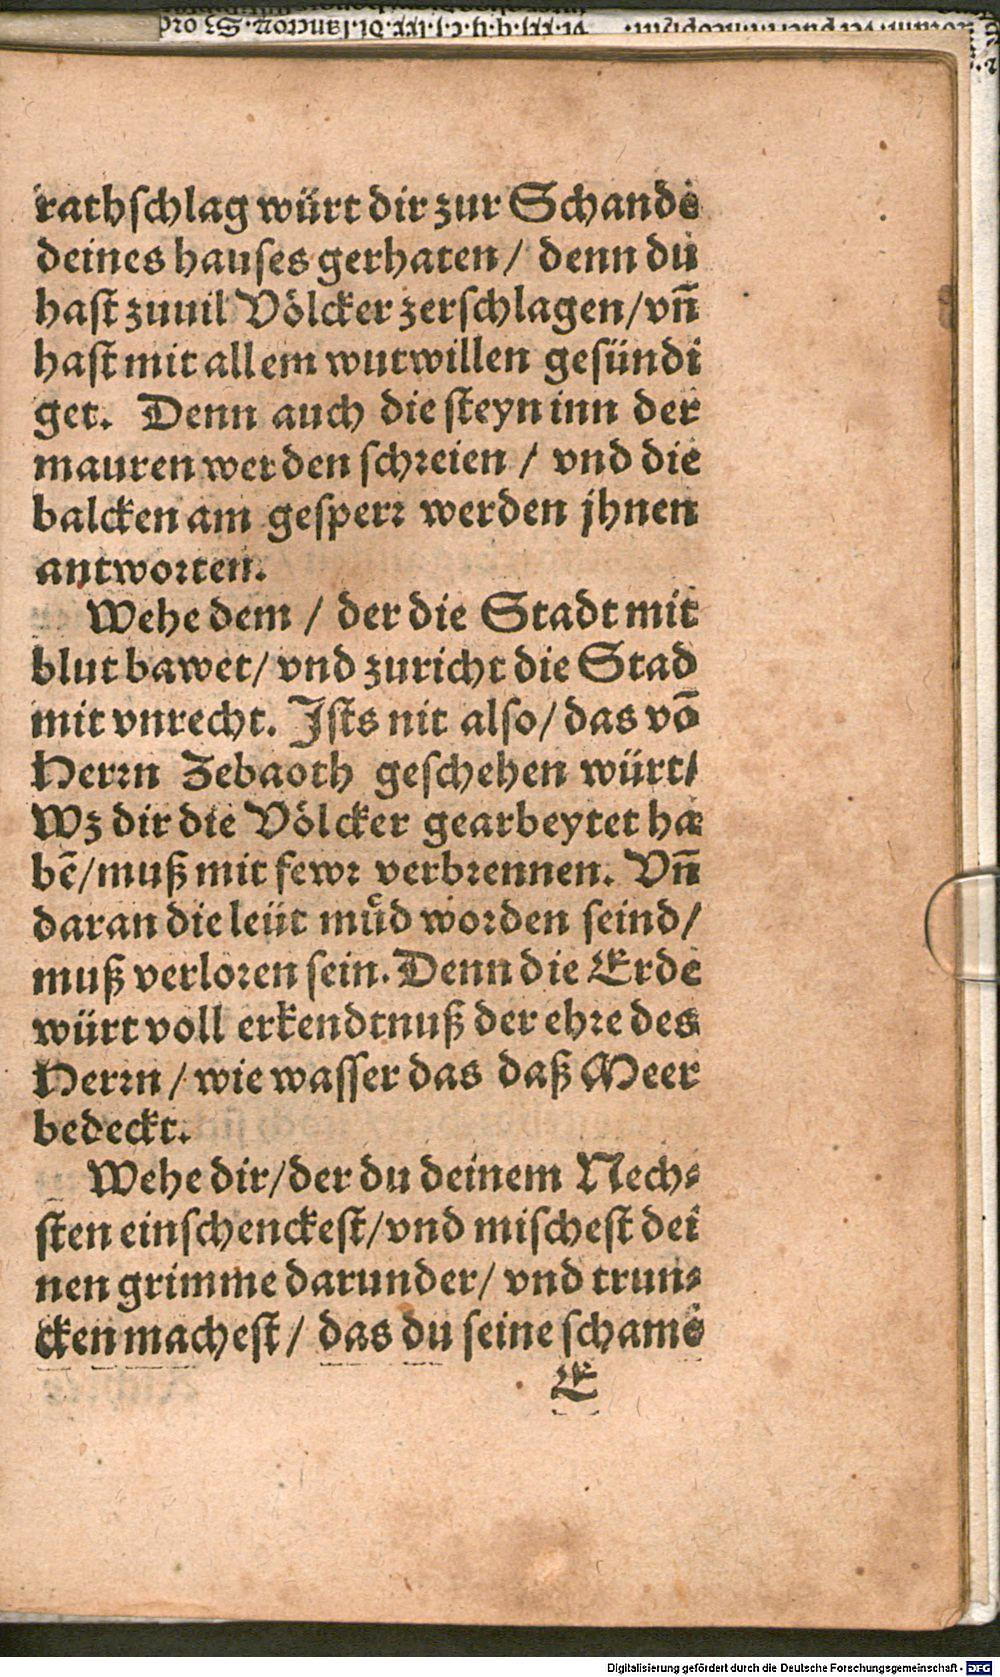 rathschlag würt dir zur Schande
deines hauses gerhaten / denn du
hast zuuil Völcker zerschlagen / vn̄
hast mit allem wutwillen gesündi
get. Denn auch die steyn inn der
mauren werden schreien / vnd die
balcken am gesperr werden jhnen
antworten.
Wehe dem / der die Stadt mit
blut bawet / vnd zuricht die Stad
mit vnrecht. Ists nit also / das vō
Herrn Zebaoth geschehen würt /
Wz dir die Völcker gearbeytet ha⸗
bē / muß mit fewr verbrennen. Vn̄
daran die leüt muͤd worden seind /
muß verloren sein. Denn die Erde
würt voll erkendtnuß der ehre des
Herrn / wie wasser das daß Meer
bedeckt.
Wehe dir / der du deinem Nech⸗
sten einschenckest / vnd mischest dei
nen grimme darunder / vnd trun⸗
cken machest / das du seine schame
E
Digitalisierung gefördert durch die Deutsche Forschungsgemeinschaft - DFG